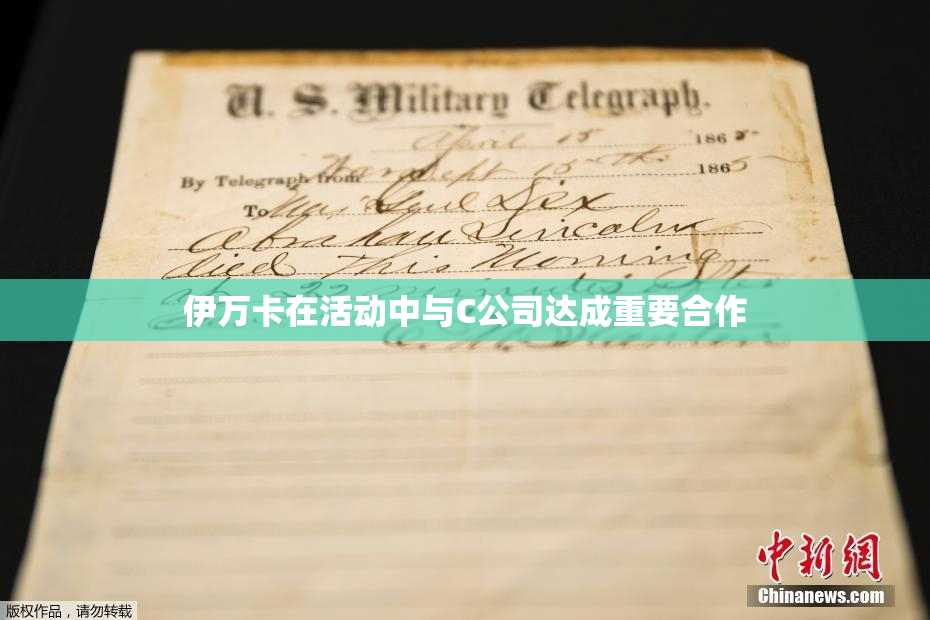 U. S. Military Telegraph.
April 15 1865
By Telegraph from War Dept 15th 1865
To Maj Genl Dix
Abraham Lincoln
died This Morning
at 22 minutes after
伊万卡在活动中与C公司达成重要合作
E. M. Stanton
中新网
Chinanews.com
版权作品，请勿转载